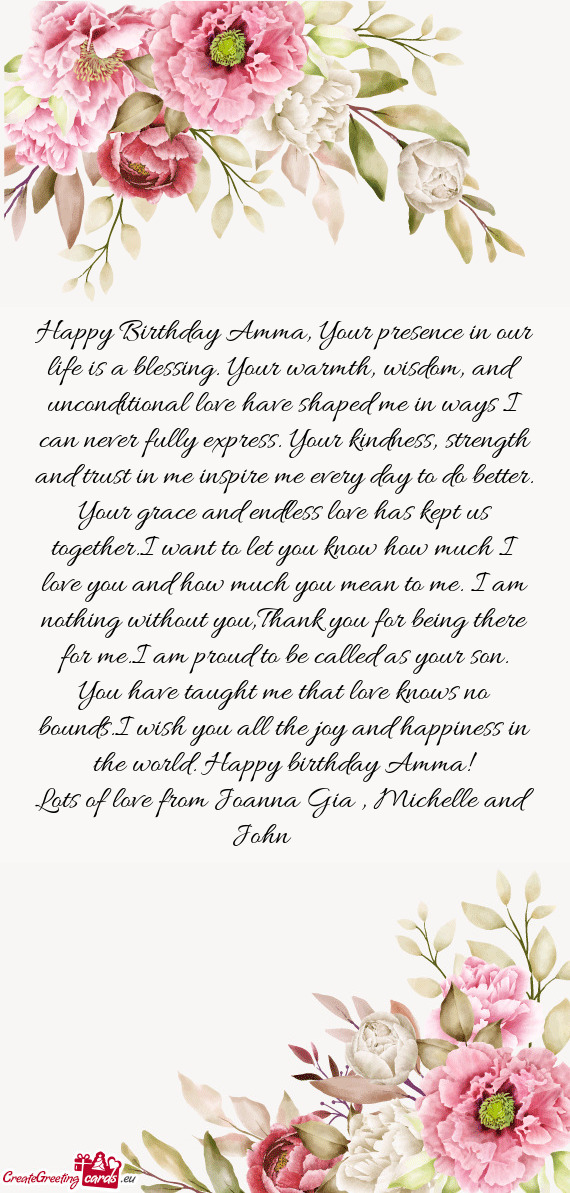 Happy Birthday Amma, Your presence in our
life is a blessing. Your warmth, wisdom, and
unconditional love have shaped me in ways I
can never fully express. Your kindness, strength
and trust in me inspire me every day to do better.
Your grace and endless love has kept us
together.I want to let you know how much I
love you and how much you mean to me. I am
nothing without you,Thank you for being there
for me.I am proud to be called as your son.
You have taught me that love knows no
bounds.I wish you all the joy and happiness in
the world. Happy birthday Amma!
Lots of love from Joanna Gia , Michelle and
John
CreateGreeting cards .eu